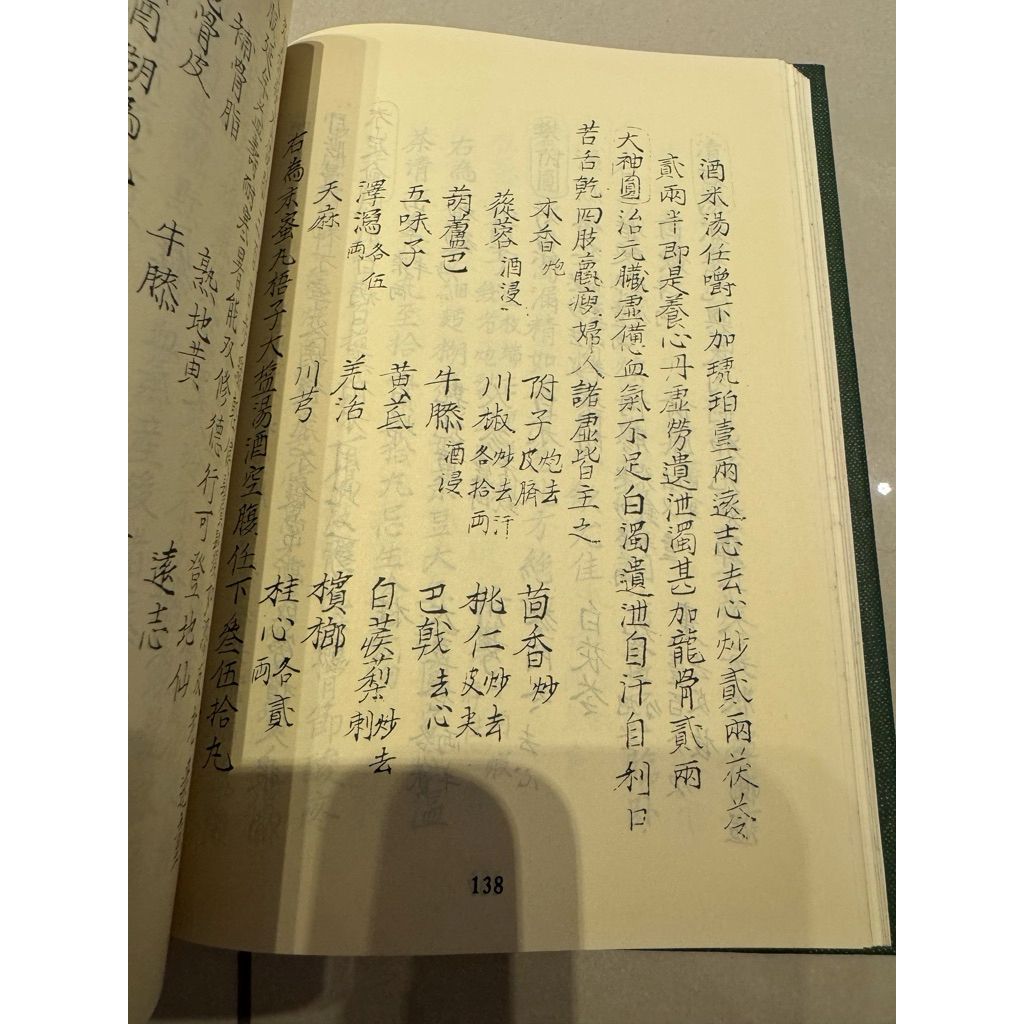 酒米湯任嚼下加琥珀壹兩遠志去心炒貳兩茯苓
貳兩半即是養心丹虛勞遺泄濁甚加龍骨貳兩
大神圓治元臟虛憊血氣不足白濁遺泄自汗自利口
苦舌乾四肢羸瘦婦人諸虛皆主之
木香炮 附子炮去皮臍 茴香炒
蓯蓉酒浸 川椒炒去汗各拾兩 桃仁炒去皮尖
葫蘆巴 牛膝酒浸 巴戟去心
五味子 黄芪 白蒺蔾炒去刺
澤瀉各伍兩 羌活 檳榔
天麻 川芎 桂心各貳兩
右為末蜜丸梧子大塩湯酒空腹任下叁伍拾丸
138
骨皮
補骨脂
牛膝
熟地黄
遠志
能久修德行可登地仙